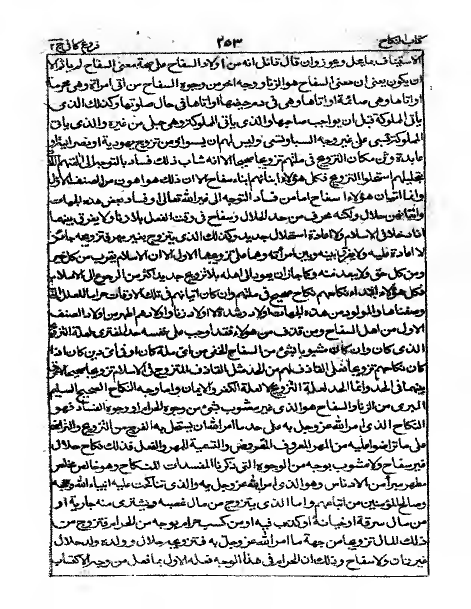 كتاب النكاح ٢٥٣ فروع كافي ج٢
الاستيناف بما يحل ويجوز وان قال قائل انه من اولاد السفاح على صحة معنى السفاح لم يأثم الا
ان يكون يعنى ان معنى السفاح هو الزنا ووجه اخر من وجوه السفاح من اتى امرأة وهى محرمة
اواتاها وهى صائمة اواتاها وهى فى دم حيضها اواتاها فى حال صلوتها وكذلك الذى
ياتى المملوكة قبل ان يواجب صاحبها والذى ياتى المملوكة وهى حبلى من غيره والذى ياتى
المملوكة تسبى على غير وجه السبا وتسبى وليس لهم ان يسبوا ومن تزوج يهودية او نصرانية او
عابدة وثن وكان التزويج فى ملتهم تزويجا صحيحا الا انه شاب ذلك فساد بالتوجه الى الهتهم اللاتى
بتحليلهم استحلوا التزويج فكل هؤلاء ابناؤهم ابناء سفاح الا ان ذلك هو اهون من الصنف الاول
وانما اتيان هؤلاء السفاح اما من فساد التوجه الى غير الله تعالى او فساد بعض هذه الجهات
واتيانهن حلال ولكنه محرف من حد الحلال وسفاح فى وقت الفعل بلا زنا ولا يفرق بينهما
اذا دخلا فى الاسلام ولا اعادة استحلال جديد وكذلك الذى يتزوج بغير مهر فتزويجه جائز
لا اعادة عليه ولا يفرق بينه وبين امرأته وهما على تزويجهما الاول الا ان الاسلام يقرب من كل خير
ومن كل حق ولا يبعد منه وكما جاز ان يعود الى اهله بلا تزويج جديد اكثر من الرجوع الى الاسلام
فكل هؤلاء ابتداء نكاحهم نكاح صحيح فى ملتهم وان كان اتيانهم فى تلك الاوقات حراما للعلل التى
وصفناها والمولود من هذه الجهات اولاد رشدة لا اولاد زنا واولادهم اطهر من اولاد الصنف
الاول من اهل السفاح ومن قذف من هؤلاء فقد اوجب على نفسه حد المفترى لعلة التزويج
الذى كان وان كان مشوبا بشىء من السفاح الخفى من اى ملة كان او فى اى دين كان اذا
كان نكاحهم تزويجا فعلى القاذف لهم من الحد مثل القاذف للمتزوج فى الاسلام تزويجا صحيحا لا فرق
بينهما فى الحد وانما الحد لعلة التزويج لا لعلة الكفر والايمان واما وجه النكاح الصحيح السليم
البرى من الزنا والسفاح هو الذى غير مشوب بشىء من وجوه الحرام او وجوه الفساد فهو
النكاح الذى امر الله عز وجل به على حد ما امر الله ان يستحل به الفرج من التزويج والتراضى
على ما تراضوا عليه من المهر المعروف المفروض والتسمية للمهر والفعل فذلك نكاح حلال
غير سفاح ولا مشوب بوجه من الوجوه التى ذكرنا المفسدات للنكاح وهو خالص مخلص
مطهر مبرأ من الادناس وهو الذى امر الله عز وجل به والذى تناكحت عليه انبياء الله وحججه
وصالح المؤمنين من اتباعهم واما الذى يتزوج من مال غصبه ويشترى منه جارية او
من مال سرقة او خيانة او كذب فيه او من كسب حرام بوجه من الحرام فتزوج من
ذلك المال تزويجا من جهة ما امر الله عز وجل به فتزويجه حلال وولده ولد حلال
غير زان ولا سفاح وذلك ان الحرام فى هذا الوجه فعله الاول بما فعل من وجه الاكتساب